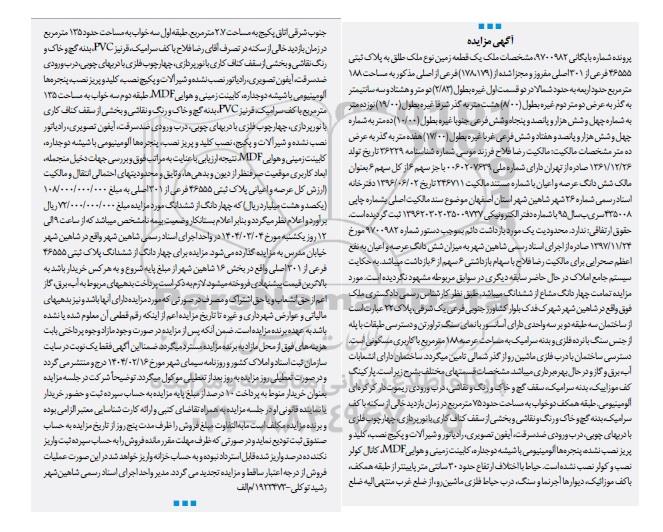 آگهی مزایده
پرونده شماره بایگانی ۹۷۰۰۹۸۲، مشخصات ملک یک قطعه زمین نوع ملک طلق به پلاک ثبتی
۴۶۵۵۵ فرعی از ۳۰۱ اصلی مفروز و مجزا شده از (۱۷۸،۱۷۹) فرعی از اصلی مذکور به مساحت ۱۸۸
متر مربع حدود اربعه به حدود شمالا در دو قسمت اول غیره بطول (۲/۸۲) دو متر و هشتاد و سه سانتیمتر
به گذر به عرض دو متر دوم غیره بطول (۸/۰۰) هشت متر به گذر شرقا غیره بطول (۱۹/۰۰) نوزده متر
به شماره چهل و شش هزار و پانصد و پنجاه و شش فرعی جنوبا غیره بطول (۱۰/۰۰) ده متر به شماره
چهل و شش هزار و پانصد و هفتاد و شش فرعی غربا غیره بطول (۱۷/۰۰) هفده متر به گذر به عرض
ده متر مشخصات مالکیت: مالکیت رضا فلاح فرزند موسی شماره شناسنامه ۳۶۲۲۹ تاریخ تولد
۱۳۶۱/۱۲/۲۶ صادره از تهران دارای شماره ملی ۰۰۶۰۲۰۷۶۳۹ با جز سهم ۶ از کل سهم ۶ بعنوان
مالک شش دانگ عرصه و اعیان با شماره مستند مالکیت ۲۴۶۷۱۱ تاریخ ۱۳۹۶/۰۶/۰۲ دفترخانه
اسناد رسمی شماره ۲۶ شهر شاهین شهر استان اصفهان موضوع سند مالکیت اصلی بشماره چاپی
۴۳۵۰۰۸ سری ب سال ۹۵ با شماره دفتر الکترونیکی ۱۳۹۶۲۰۳۰۲۰۳۵۰۰۹۷۲۷ ثبت گردیده است.
حقوق ارتفاقی: ندارد. محدودیت: یک مورد بازداشت دائم به‌موجب دستور شماره ۹۷۰۰۹۸۲ مورخ
۱۳۹۷/۱۱/۲۴ صادره از اجرای اسناد رسمی شاهین شهر به میزان شش دانگ عرصه و اعیان به نفع
اعظم صحرایی برای مالکیت رضا فلاح با سهام بازداشتی ۶ سهم از ۶ بازداشت میباشد. به حکایت
سیستم جامع املاک در حال حاضر سابقه دیگری در سوابق مربوطه مشهود نگردیده است. مورد
مزایده تمامت چهار دانگ مشاع از ششدانگ میباشد. طبق نظر کارشناس رسمی دادگستری ملک
فوق واقع در شاهین شهر شهرک فدک بلوار کشاورز جنوبی فرعی یک شرقی، پلاک ۲۲ عبارت است
از ساختمان سه طبقه دو بر سه واحدی دارای آسانسور با نمای سنگ تراورتن و دسترسی طبقات با پله
از جنس سنگ با نرده فلزی و بنه سرامیک به مساحت عرصه ۱۸۸ متر مربع با کاربری مسکونی است.
دسترسی ساختمان با درب فلزی ماشین رو از گذر شمالی تامین میگردد. ساختمان دارای انشعابات
آب، برق و گاز و در حال بهره‌برداری میباشد. مشخصات قسمتهای مختلف بشرح زیر است. پارکینگ
کف موزاییک، بدنه سرامیک، سقف گچ و خاک و رنگ و نقاشی، درب ورودی ریموت دار کرکره‌ای
آلومینیومی. طبقه همکف دو خواب به مساحت حدود ۷۵ متر مربع در زمان بازدید خالی از سکنه با کف
سرامیک، بدنه گچ و خاک و رنگ و نقاشی و بخشی از سقف کناف کاری با نورپردازی، چهارچوب فلزی
با دربهای چوبی، درب ورودی ضدسرقت، آیفون تصویری، رادیاتور و شیر آلات و پکیج نصب، کلید و
پریز نصب نشده، پنجره‌ها آلومینیومی با شیشه دوجداره، کابینت زمینی و هوایی MDF، کانال کولر
نصب و کولر نصب نشده است. حیاط با اختلاف ارتفاع حدود ۳۰ سانتی متر پایینتر از طبقه همکف،
با کف موزائیک، دیوارها آجرنما و سنگ، درب حیاط فلزی ماشین‌رو، از ضلع غرب منتهی‌الیه ضلع
جنوب شرقی اتاق پکیج به مساحت ۲.۷ مترمربع. طبقه اول سه خواب به مساحت حدود ۱۳۵ مترمربع
در زمان بازدید خالی از سکنه در تصرف آقای رضا فلاح با کف سرامیک، قرنیز PVC، بدنه گچ و خاک و
رنگ نقاشی و بخشی از سقف کناف کاری با نورپردازی، چهارچوب فلزی با دربهای چوبی، درب ورودی
ضدسرقت، آیفون تصویری، رادیاتور نصب نشده و شیر آلات و پکیج نصب، کلید و پریز نصب، پنجره‌ها
آلومینیومی با شیشه دوجداره، کابینت زمینی و هوایی MDF. طبقه دوم سه خواب به مساحت ۱۳۵
متر مربع با کف سرامیک، قرنیز PVC، بدنه گچ و خاک و رنگ و نقاشی و بخشی از سقف کناف کاری
با نورپردازی، چهارچوب فلزی با دربهای چوبی، درب ورودی ضدسرقت، آیفون تصویری، رادیاتور
نصب نشده و شیر آلات و پکیج، نصب کلید و پریز نصب، پنجره‌ها آلومینیومی با شیشه دوجداره،
کابینت زمینی و هوایی MDF. نتیجه ارزیابی با عنایت به مراتب فوق و بررسی جهات دخیل منجمله،
ابعاد کاربری موقعیت صرفنظر از دیون و بدهی‌ها، وثایق و محدودیتهای احتمالی انتقال و مالکیت
(ارزش کل عرصه و اعیانی پلاک ثبتی ۴۶۵۵۵ فرعی از ۳۰۱ اصلی به مبلغ ۱۰۸/۰۰۰/۰۰۰/۰۰۰
(یکصد و هشت میلیارد ریال) که چهار دانگ از ششدانگ مورد مزایده مبلغ ۷۲/۰۰۰/۰۰۰/۰۰۰ ریال
برآورد و اعلام نظر میگردد و بنابر اعلام بستانکار وضعیت بیمه نامشخص میباشد که از ساعت ۹ الی
۱۲ روز یکشنبه مورخ ۱۴۰۴/۰۳/۰۴ در واحد اجرای اسناد رسمی شاهین شهر واقع در شاهین شهر
خیابان مدرس به مزایده گذارده می‌شود. مزایده برای چهار دانگ از ششدانگ پلاک ثبتی ۴۶۵۵۵
فرعی از ۳۰۱ اصلی واقع در بخش ۱۶ شاهین شهر از مبلغ پایه شروع و به هر کس خریدار باشد به
بالاترین قیمت پیشنهادی فروخته میشود. لازم به ذکر است پرداخت بدهیهای مربوط به آب، برق، گاز
اعم از حق انشعاب و یا حق اشتراک و مصرف در صورتی که مورد مزایده دارای آنها باشد و نیز بدهیهای
مالیاتی و عوارض شهرداری و غیره تا تاریخ مزایده اعم از اینکه رقم قطعی آن معلوم شده یا نشده
باشد به عهده برنده مزایده است. ضمن آنکه پس از مزایده در صورت وجود مازاد وجوه پرداختی بابت
هزینه‌های فوق از محل مازاد به برنده مزایده مسترد میگردد. ضمنا این آگهی فقط یک نوبت در سایت
سازمان ثبت اسناد و املاک کشور و روزنامه سیمای شهر مورخ ۱۴۰۴/۰۲/۱۶ درج و منتشر می گردد
و در صورت تعطیلی روز مزایده به روز بعد از تعطیلی موکول میگردد. توضیحاً شرکت در جلسه مزایده
بعنوان خریدار منوط به پرداخت ۱۰ درصد از مبلغ پایه مزایده به حساب سپرده ثبت و حضور خریدار
یا نماینده قانونی او در جلسه مزایده به همراه تقاضای کتبی و ارائه کارت شناسایی معتبر الزامی بوده
و برنده مزایده مکلف است مابه‌التفاوت مبلغ فروش را ظرف مدت پنج روز از تاریخ مزایده به حساب
صندوق ثبت تودیع نماید و در صورتی که ظرف مهلت مقرر مانده فروش را به حساب سپرده ثبت واریز
نکند، ده درصد واریز شده قابل استرداد نبوده و به حساب خزانه واریز خواهد شد در این صورت عملیات
فروش از درجه اعتبار ساقط و مزایده تجدید می گردد. مدیر واحد اجرای اسناد رسمی شاهین‌شهر
رشید توکلی-۱۹۲۲۴۷۳/م‌الف